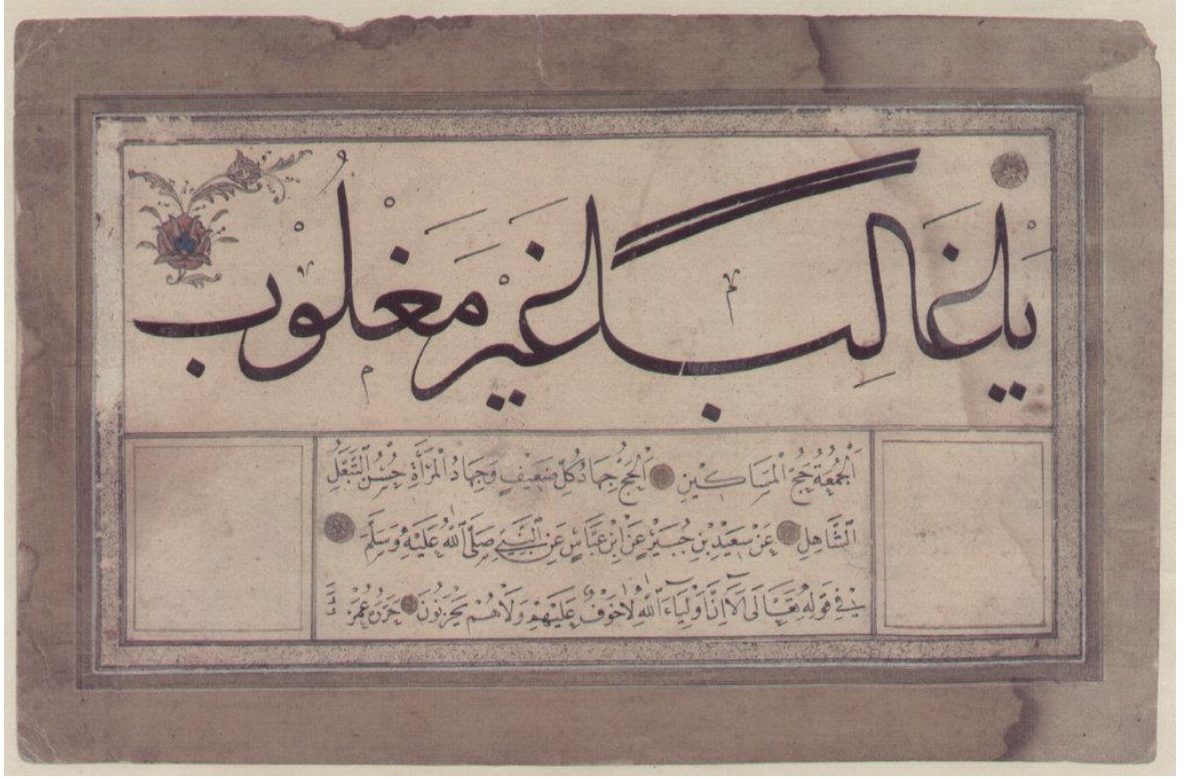 يا غالبًا غير مغلوب
اَلْجُمُعَةُ حَجُّ الْمَسَاكِينِ اَلْحَجُّ جِهَادُ كُلِّ ضَعِيفٍ وَجِهَادُ الْمَرْأَةِ حُسْنُ التَّبَعُّلِ
عَنْ سَعِيدِ بْنِ جُبَيْرٍ عَنِ ابْنِ عَبَّاسٍ عَنِ النَّبِيِّ صَلَّى اللّٰهُ عَلَيْهِ وَسَلَّمَ
فِي قَوْلِهِ تَعَالَى اَلَآ اِنَّ اَوْلِيَآءَ اللّٰهِ لَا خَوْفٌ عَلَيْهِمْ وَلَا هُمْ يَحْزَنُونَ